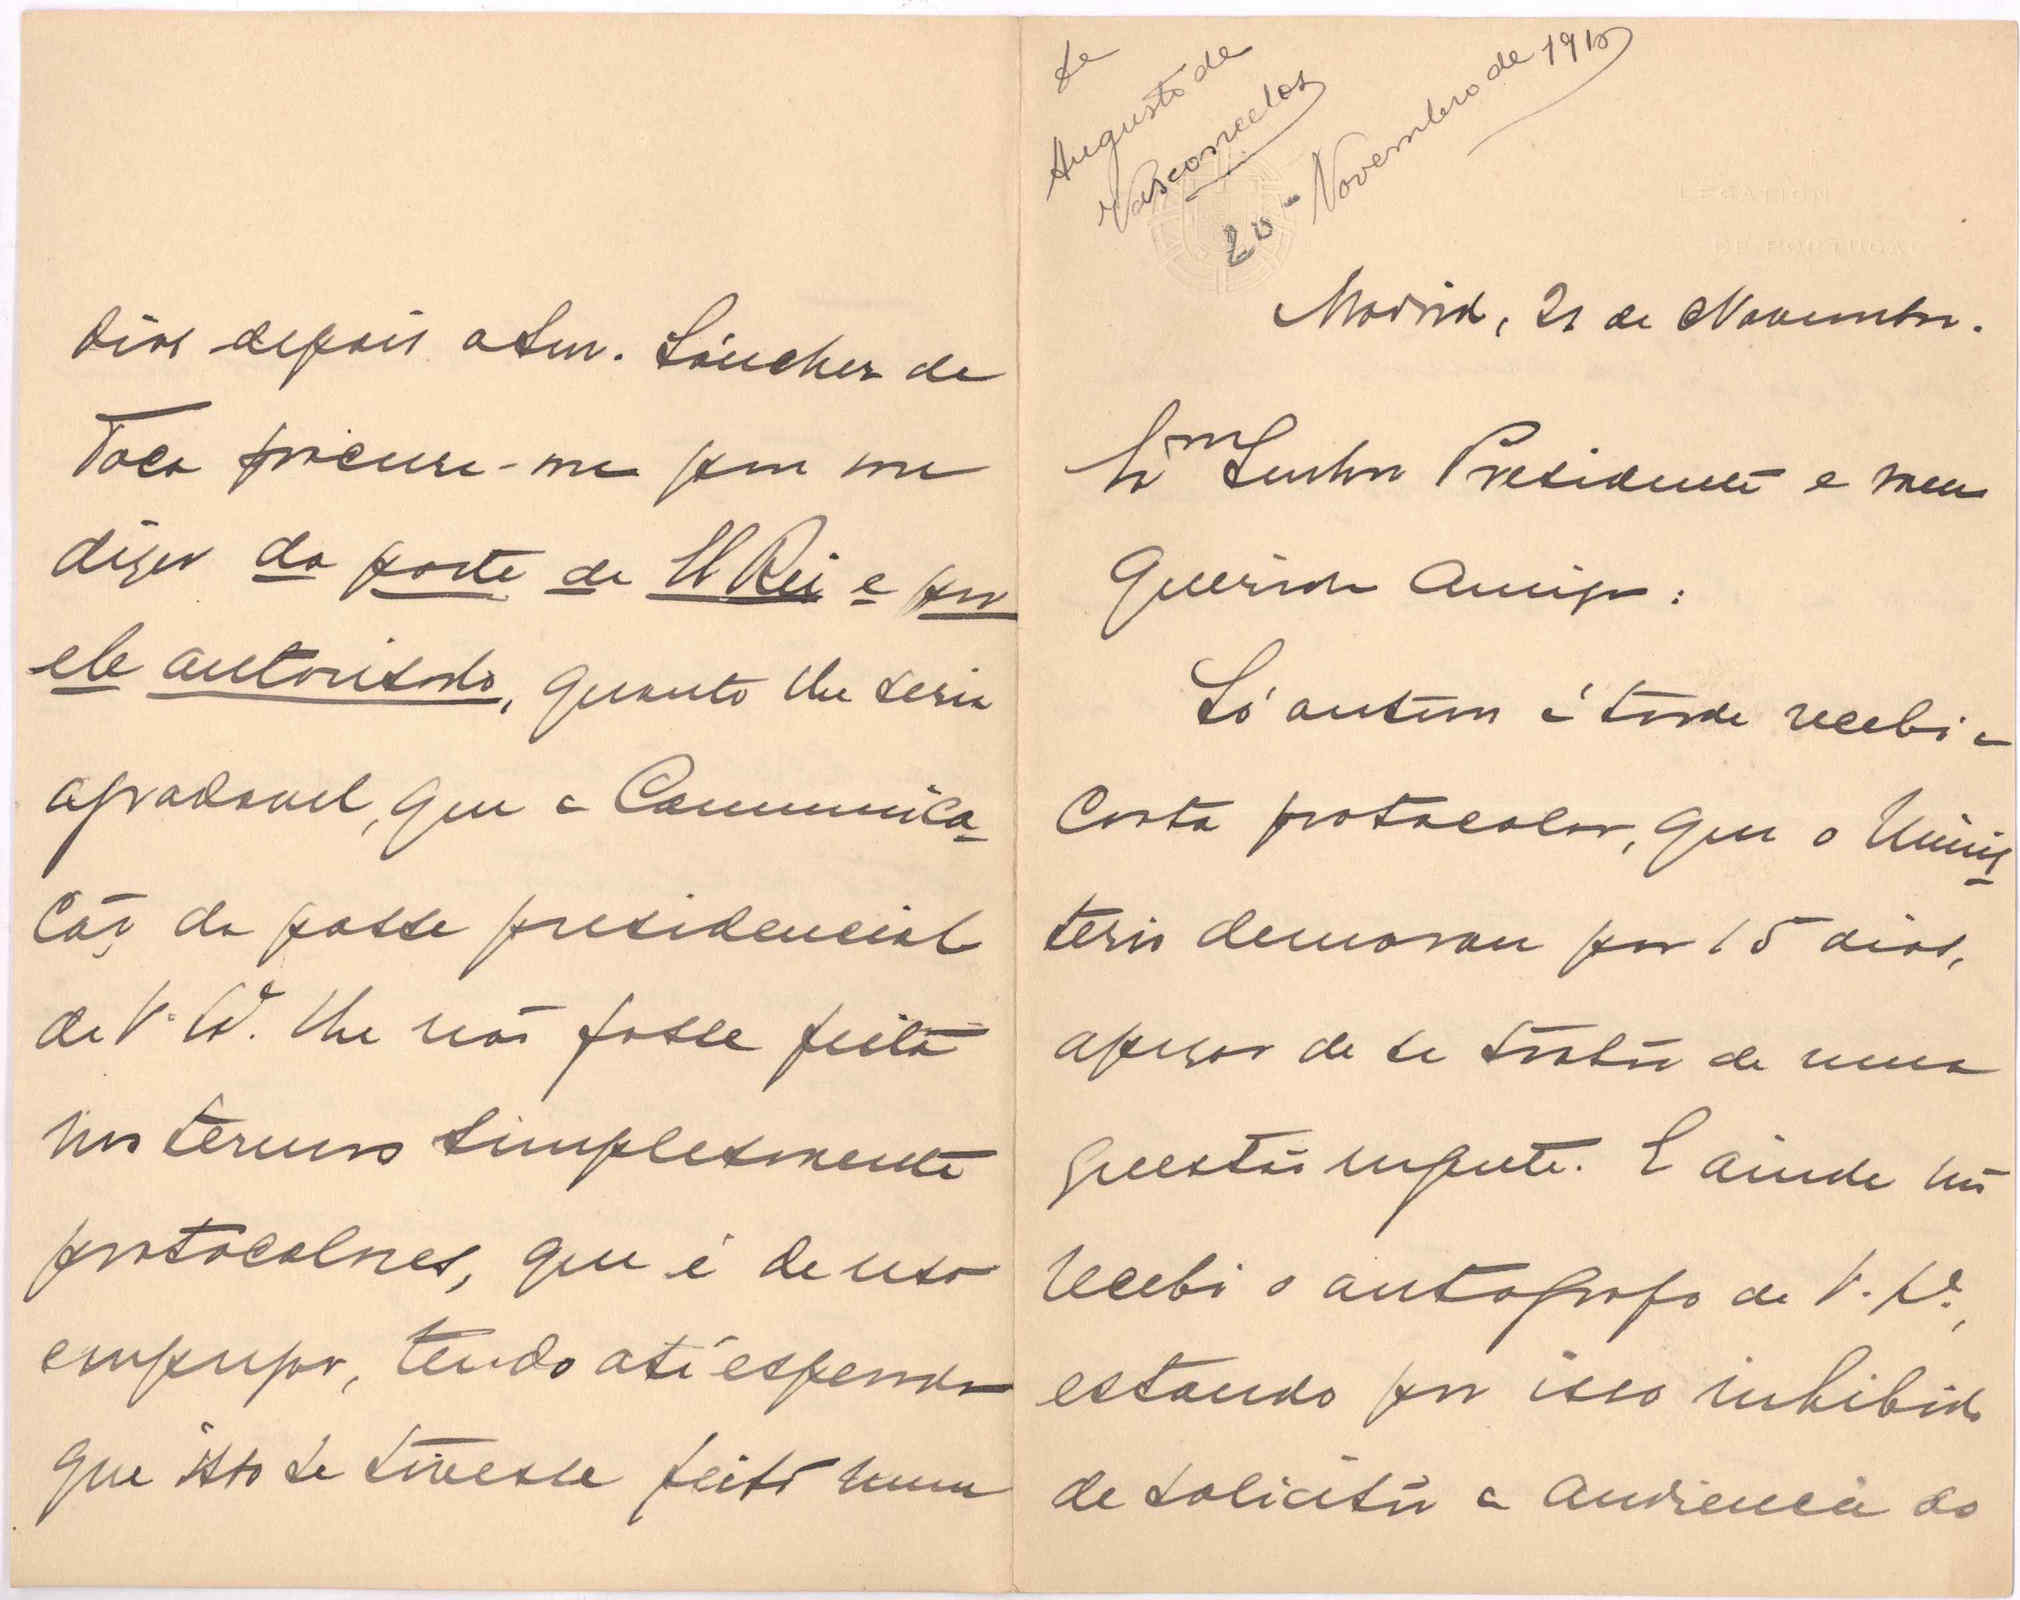 de
Augusto de
Vasconcelos
20 - Novembro de 1915
LEGATION
DE PORTUGAL
Madrid, 21 de Novembro.
Senhor Presidente e meu
Querido Amigo:
Só ontem á tarde recebi a
Carta protocolar, que o Minis-
terio demorou por 15 dias,
apezar de se tratar de uma
questão urgente. E ainda não
recebi o autografo de V. Exª.,
estando por isso inhibido
de solicitar a audiencia do
dias depois o Snr. Sánchez de
Toca procura-me para me
dizer da parte de El Rei e por
ele autorisado, quanto lhe seria
agradavel, que a Communica-
ção da posse presidencial
de V. Exª. lhe não fosse feita
nos termos simplesmente
protocolares, que é de uso
empregar, tendo até esperado
que isto se tivesse feito numa